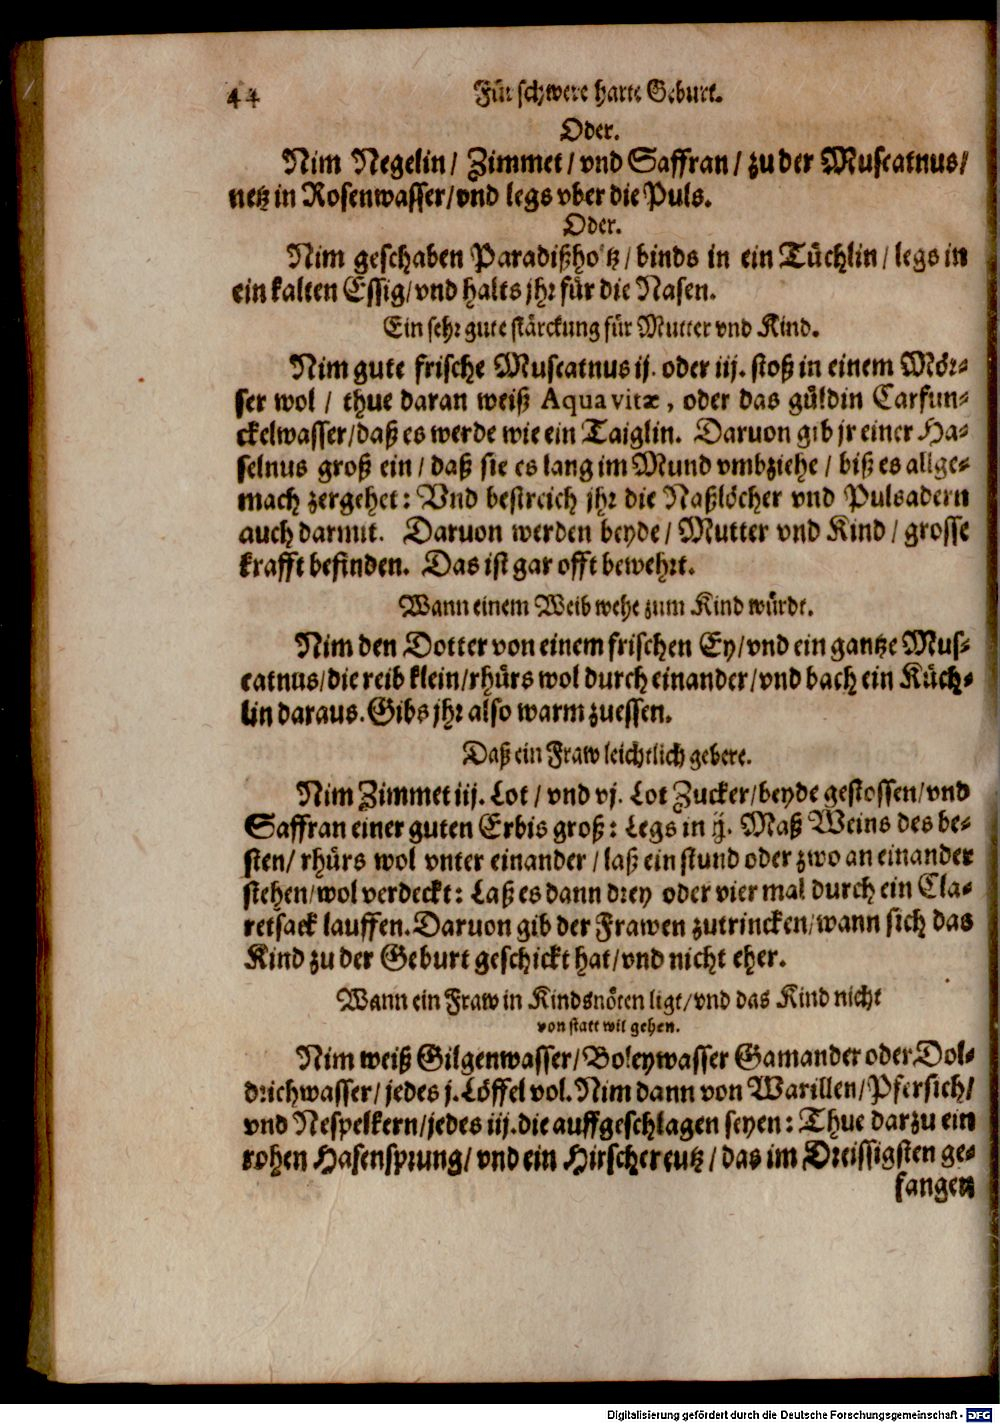 44 Für schwere harte Geburt.
Oder.
Nim Negelin/ Zimmet/ vnd Saffran/ zu der Muscatnus/
netz in Rosenwasser/ vnd legs vber die Puls.
Oder.
Nim geschaben Paradißholtz/ binds in ein Tüchlin/ legs in
ein kalten Essig/ vnd halts jhr für die Nasen.
Ein sehr gute stärckung für Mutter vnd Kind.
Nim gute frische Muscatnus ij. oder iij. stoß in einem Mör-
ser wol / thue daran weiß Aqua vitæ, oder das güldin Carfun-
ckelwasser/ daß es werde wie ein Taiglin. Daruon gib jr einer Ha-
selnus groß ein / daß sie es lang im Mund vmbziehe / biß es allge-
mach zergehet: Vnd bestreich jhr die Naßlöcher vnd Pulsadern
auch darmit. Daruon werden beyde/ Mutter vnd Kind / grosse
krafft befinden. Das ist gar offt bewehrt.
Wann einem Weib wehe zum Kind würdt.
Nim den Dotter von einem frischen Ey/ vnd ein gantze Mus-
catnus/ die reib klein/ rhürs wol durch einander/ vnd bach ein Küch-
lin daraus. Gibs jhr also warm zuessen.
Daß ein Fraw leichtlich gebere.
Nim Zimmet iij. Lot / vnd vj. Lot Zucker/ beyde gestossen/ vnd
Saffran einer guten Erbis groß: Legs in ij. Maß Weins des be-
sten/ rhürs wol vnter einander / laß ein stund oder zwo an einander
stehen/ wol verdeckt: Laß es dann drey oder vier mal durch ein Cla-
retsack lauffen. Daruon gib der Frawen zutrincken/ wann sich das
Kind zu der Geburt geschickt hat/ vnd nicht eher.
Wann ein Fraw in Kindsnöten ligt/ vnd das Kind nicht
von statt wil gehen.
Nim weiß Gilgenwasser/ Boleywasser Gamander oder Dol-
drichwasser/ jedes j. Löffel vol. Nim dann von Marillen/ Pfersich/
vnd Nespelkern/ jedes iij. die auffgeschlagen seyen: Thue darzu ein
rohen Hasensprung/ vnd ein Hirschcreutz / das im Dreissigsten ge-
fangen
Digitalisierung gefördert durch die Deutsche Forschungsgemeinschaft - DFG